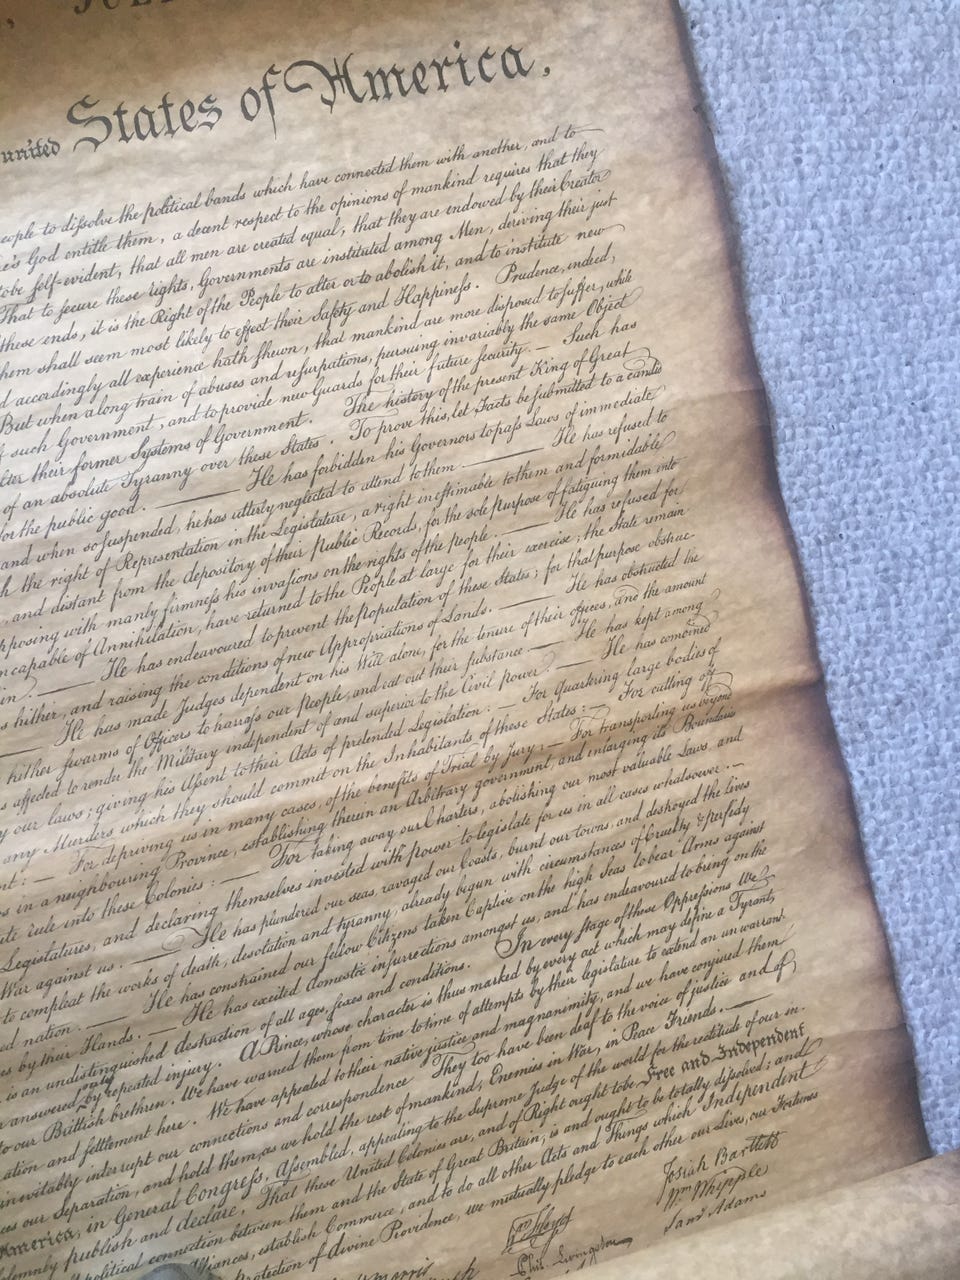 , JULY
united States of America,
eople to dissolve the political bands which have connected them with another, and to
re's God entitle them, a decent respect to the opinions of mankind requires that they
to be self-evident, that all men are created equal, that they are endowed by their Creator
That to secure these rights, Governments are instituted among Men, deriving their just
these ends, it is the Right of the People to alter or to abolish it, and to institute new
hem shall seem most likely to effect their Safety and Happiness. Prudence, indeed,
d accordingly all experience hath shewn, that mankind are more disposed to suffer, while
But when a long train of abuses and usurpations, pursuing invariably the same Object
f such Government, and to provide new Guards for their future security. — Such has
lter their former Systems of Government. The history of the present King of Great
of an absolute Tyranny over these States. To prove this, let Facts be submitted to a candid
for the public good. — He has forbidden his Governors to pass Laws of immediate
and when so suspended, he has utterly neglected to attend to them. — He has refused to
h the right of Representation in the Legislature, a right inestimable to them and formidable
, and distant from the depository of their Public Records, for the sole purpose of fatiguing them into
pposing with manly firmness his invasions on the rights of the people. — He has refused for
n capable of Annihilation, have returned to the People at large for their exercise; the State remain
in. — He has endeavoured to prevent the population of these States; for that purpose obstruc-
s hither, and raising the conditions of new Appropriations of Lands. — He has obstructed the
— He has made Judges dependent on his Will alone, for the tenure of their offices, and the amount
hither swarms of Officers to harrass our People, and eat out their substance. — He has kept among
s affected to render the Military independent of and superior to the Civil power. — He has combined
y our laws; giving his Assent to their Acts of pretended Legislation: — For Quartering large bodies of
any Murders which they should commit on the Inhabitants of these States: — For cutting off
nt: — For depriving us in many cases, of the benefits of Trial by Jury: — For transporting us beyond
s in a neighbouring Province, establishing therein an Arbitrary government, and enlarging its Boundaries
ute rule into these Colonies: — For taking away our Charters, abolishing our most valuable Laws, and
Legislatures, and declaring themselves invested with power to legislate for us in all cases whatsoever. —
War against us. — He has plundered our seas, ravaged our Coasts, burnt our towns, and destroyed the lives
to compleat the works of death, desolation and tyranny, already begun with circumstances of Cruelty & perfidy
ed nation. — He has constrained our fellow Citizens taken Captive on the high Seas to bear Arms against
es by their Hands. — He has excited domestic insurrections amongst us, and has endeavoured to bring on the
is an undistinguished destruction of all ages, sexes and conditions. In every stage of these Oppressions We
answered only by repeated injury. A Prince, whose character is thus marked by every act which may define a Tyrant,
to our Brittish brethren. We have warned them from time to time of attempts by their legislature to extend an unwarrant
ation and settlement here. We have appealed to their native justice and magnanimity, and we have conjured them
inevitably interrupt our connections and correspondence They too have been deaf to the voice of justice and of
ces our Separation, and hold them, as we hold the rest of mankind, Enemies in War, in Peace Friends. —
America, in General Congress, Assembled, appealing to the Supreme Judge of the world for the rectitude of our in.
olemnly publish and declare, That these United Colonies are, and of Right ought to be Free and Independent
ll political connection between them and the State of Great Britain, is and ought to be totally dissolved; and
Alliances, establish Commerce, and to do all other Acts and Things which Independent
rotection of divine Providence, we mutually pledge to each other our Lives, our Fortunes
Josiah Bartlett
Wm Whipple
Saml Adams
Wm Floyd
Phil. Livingston
Morris